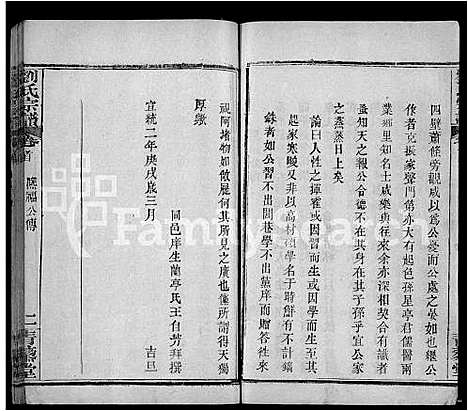 四壁蕭條旁觀咸以爲公憂而公處之晏如也緄公
者克振家聲門第亦大有起色孫星亭君儒醫兩
業鄉里知名士咸樂與往來余亦深相契合有識者
益知天之報公令德不在其身在其子孫乎宜公家
之蒸蒸日上矣
論曰人性之揮霍或因習而生或因學而生當其
起家寒畯又並非以高材碩學名于時斛有不計錙
銖者如公習不出閭巷學不出黨庠而贈答往來
視阿堵物如敝屣何其所見之廣也僿所謂得天獨
厚歟
宣統二年庚戌歲三月 吉旦
同邑庠生蘭亭氏王自芳拜撰
劉氏宗譜 卷首 蔭福公傳 二 青藜堂
FamilySearch